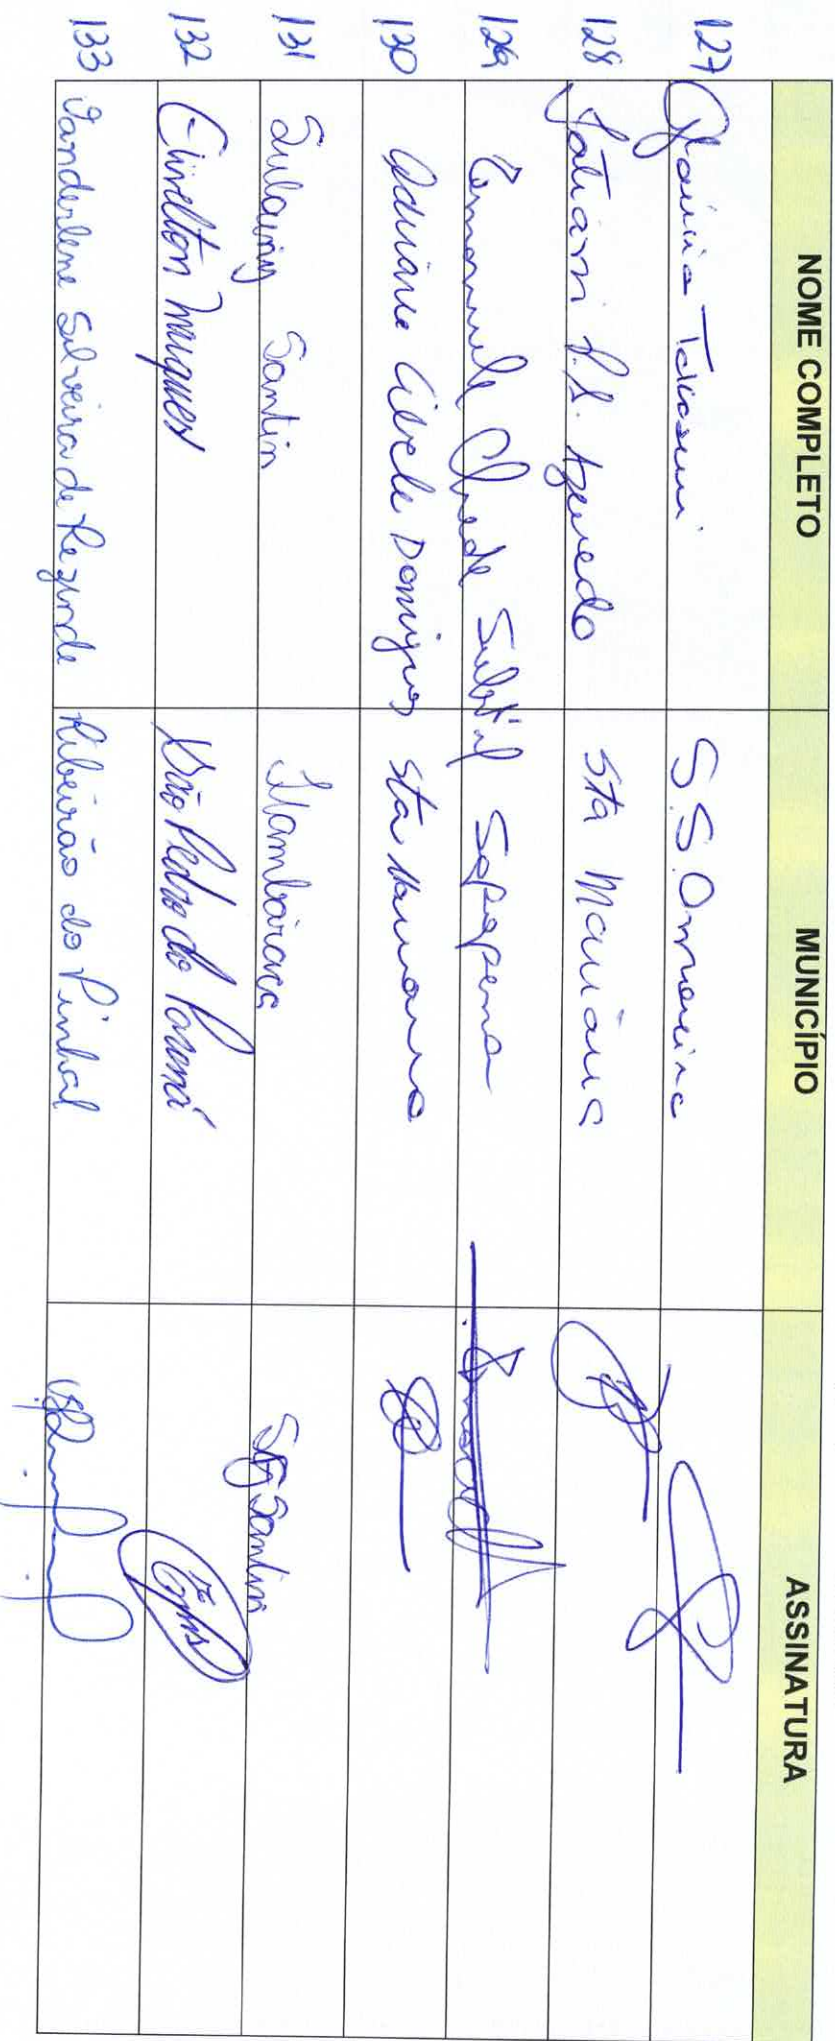 NOME COMPLETO MUNICÍPIO ASSINATURA
127 S.S. Amoreira
128 Tatiani P.S. Azevedo Sta Mariana
129 Emanuele Cleide Subtil Sapopema
130 Adriane Cibele Domingues Sta Mariana
131 Sulamy Santin Itambaracá Santin
132 Elivelton Marques São Pedro do Paraná
133 Vanderlene Silveira de Rezende Ribeirão do Pinhal